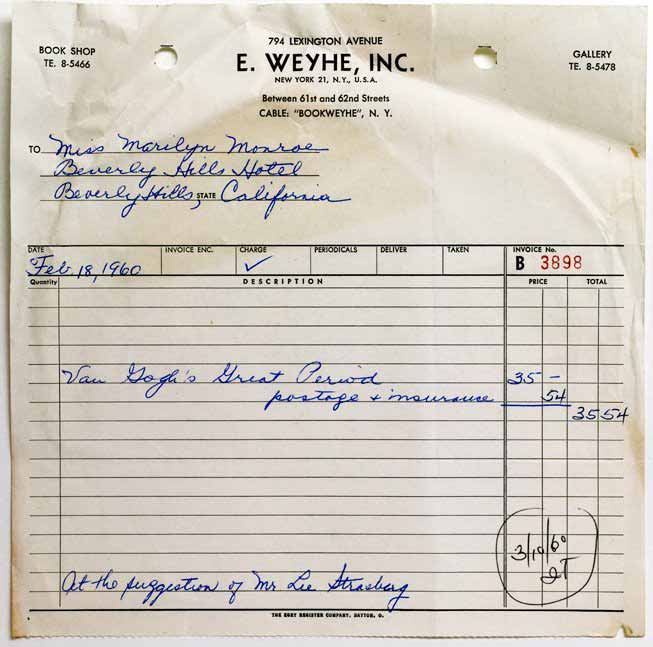 794 LEXINGTON AVENUE
BOOK SHOP
TE. 8-5466
E. WEYHE, INC.
NEW YORK 21, N.Y., U.S.A.
GALLERY
TE. 8-5478
Between 61st and 62nd Streets
CABLE: "BOOKWEYHE", N. Y.
TO Miss Marilyn Monroe
Beverly Hills Hotel
Beverly Hills, STATE California
DATE INVOICE ENC. CHARGE PERIODICALS DELIVER TAKEN INVOICE No.
Feb. 18, 1960 ✓ B 3898
Quantity DESCRIPTION PRICE TOTAL
Van Gogh's Great Period 35 –
postage + insurance 54
35 54
3/10/60
At the suggestion of Mr Lee Strasberg
THE EGRY REGISTER COMPANY, DAYTON, O.